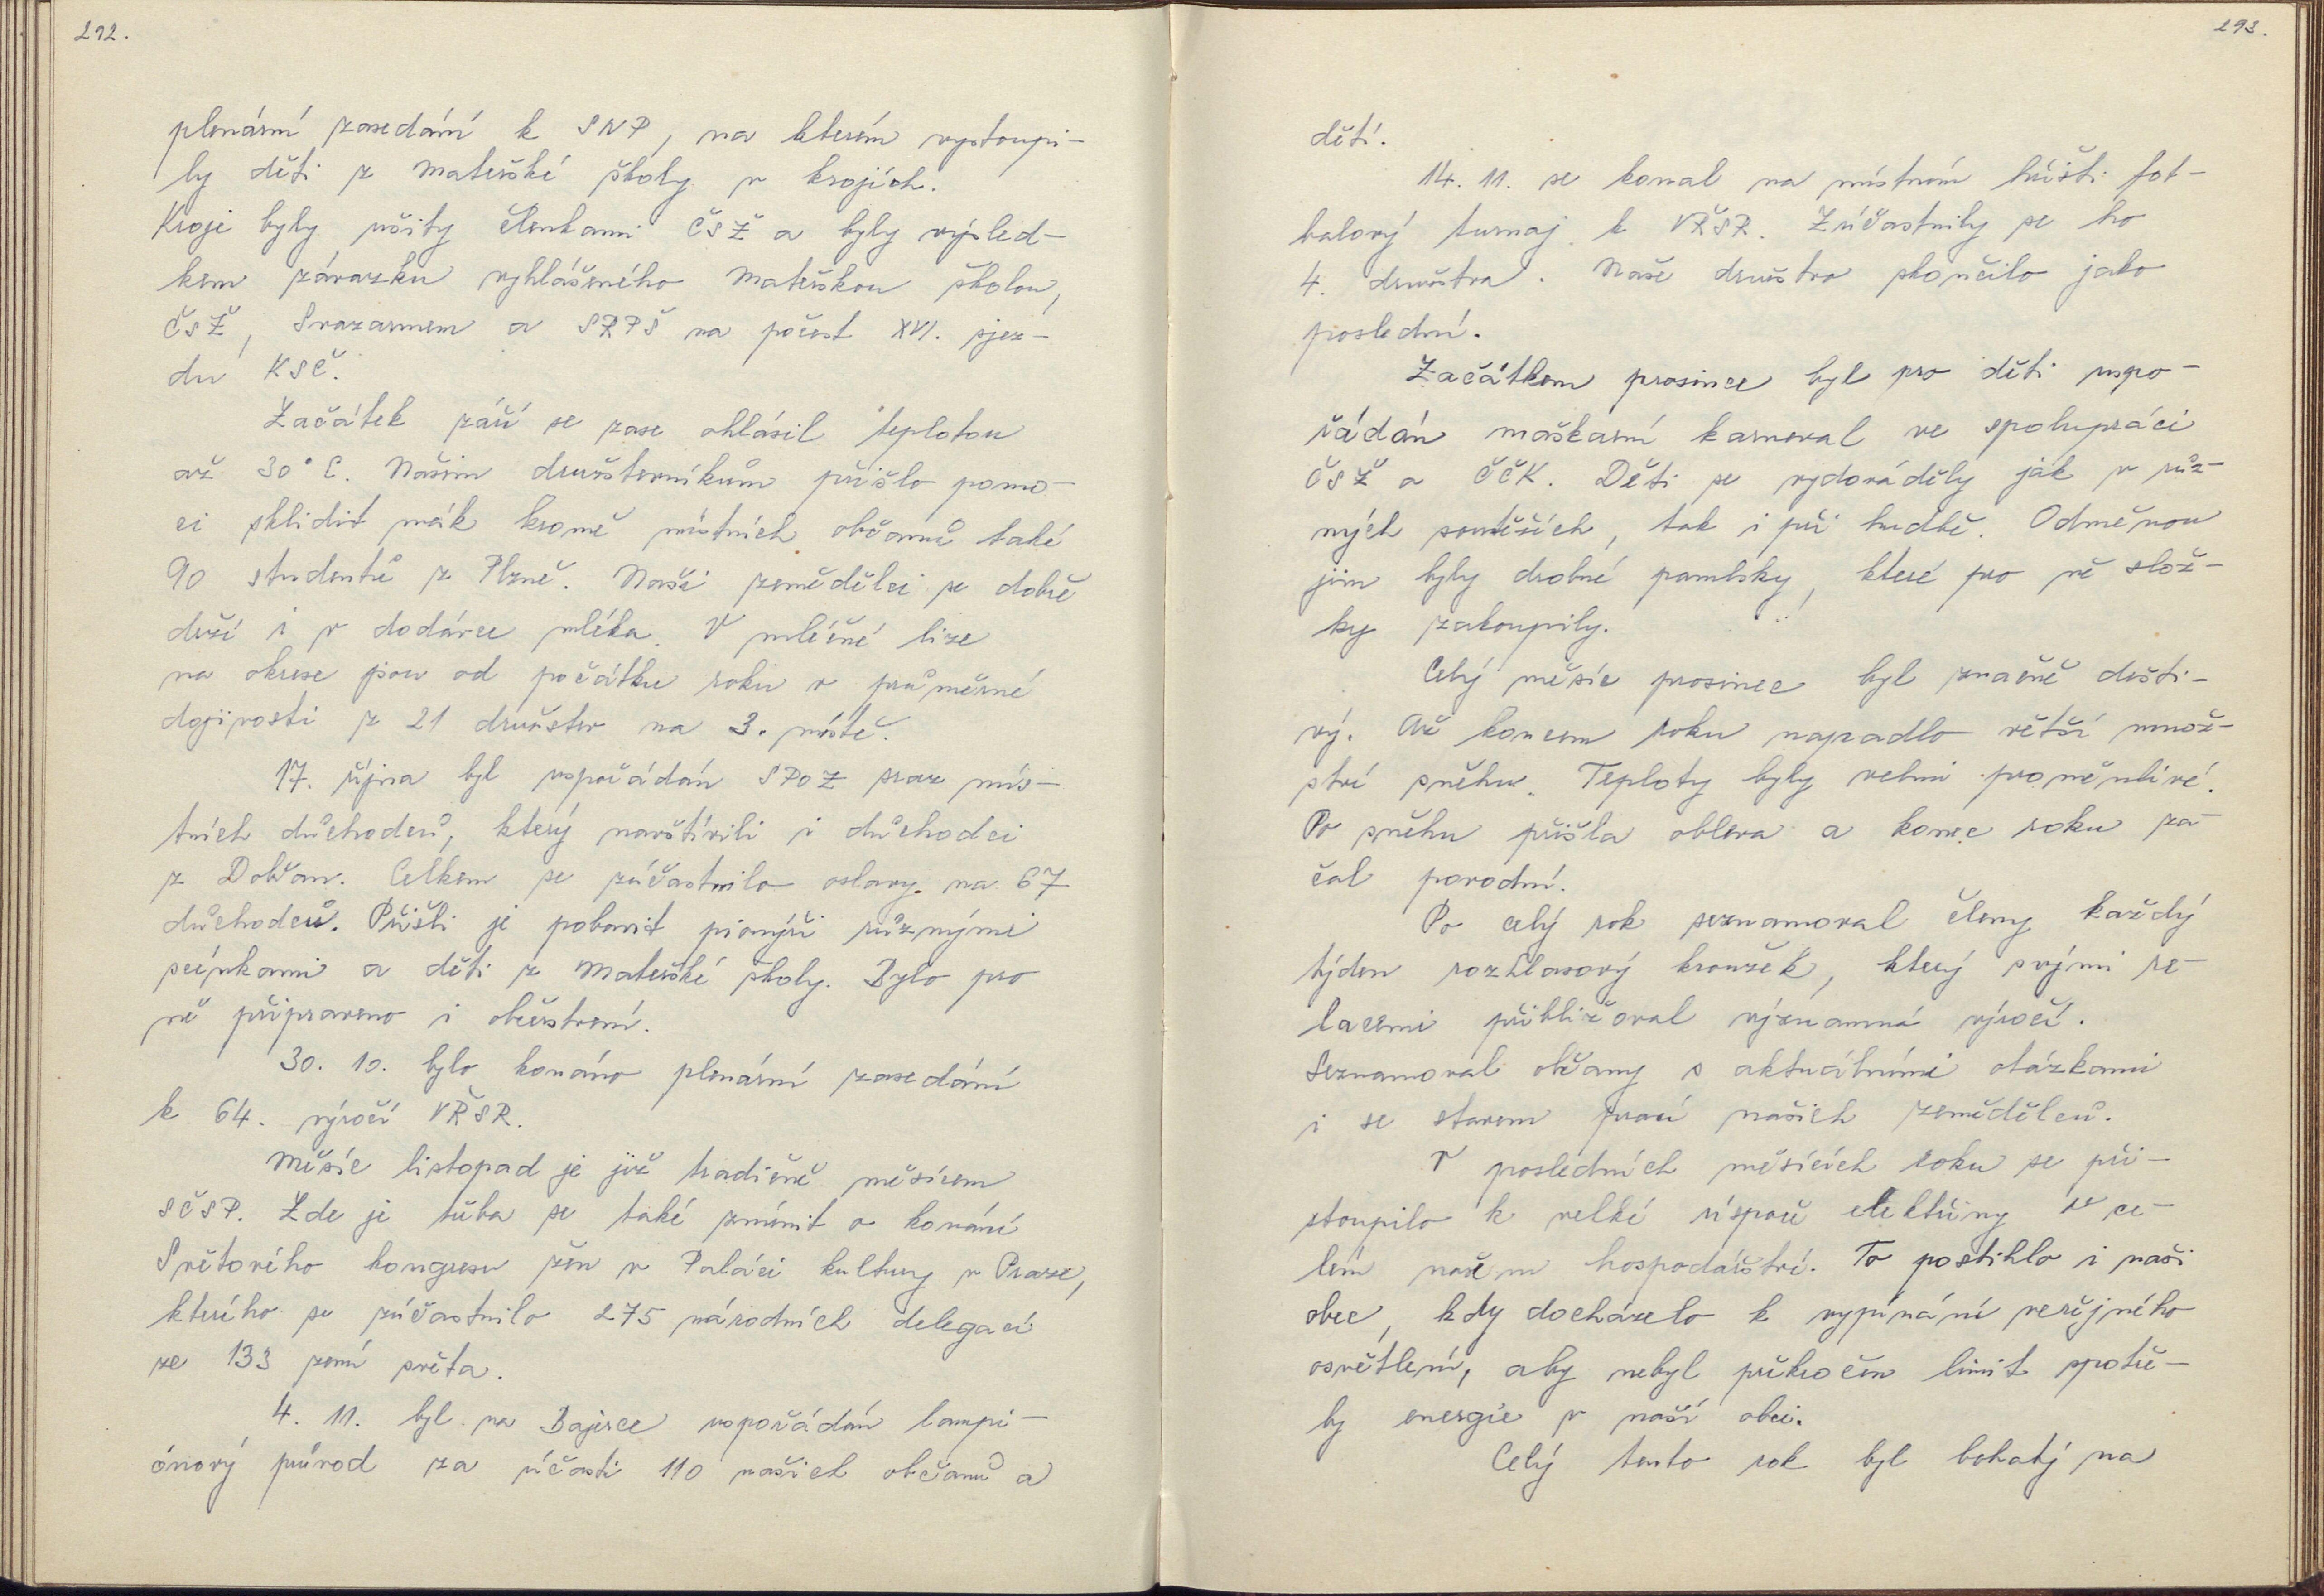 292.
plenární zasedání k SNP, na kterém vystoupi-
ly děti z Mateřské školy v krojích.
Kroje byly ušity členkami ČSŽ a byly výsled-
kem závazku vyhlášeného Mateřskou školou,
ČSŽ, Svazarmem a SRPŠ na počest XVI. sjez-
du KSČ.
Začátek září se zase ohlásil teplotou
až 30°C. Našim družstevníkům přišlo pomo-
ci sklidit mák kromě místních občanů také
90 studentů z Plzně. Naši zemědělci se dobře
drží i v dodávce mléka. V mléčné lize
na okrese jsou od počátku roku v průměrné
dojivosti z 21 družstev na 3. místě.
17. října byl uspořádán SPOZ sraz mís-
tních důchodců, který navštívili i důchodci
z Dobřan. Celkem se zúčastnilo oslavy na 67
důchodců. Přišli je pobavit pionýři různými
scénkami a děti z Mateřské školy. Bylo pro
ně připraveno i občerstvení.
30. 10. bylo konáno plenární zasedání
k 64. výročí VŘSR.
Měsíc listopad je již tradičně měsícem
SČSP. Zde je třeba se také zmínit o konání
Světového kongresu žen v Paláci kultury v Praze,
kterého se zúčastnilo 275 národních delegací
ze 133 zemí světa.
4. 11. byl na Bajerce uspořádán lampi-
ónový průvod za účasti 110 našich občanů a
293.
dětí.
14. 11. se konal na místním hřišti fot-
balový turnaj k VŘSR. Zúčastnily se ho
4. družstva. Naše družstvo skončilo jako
poslední.
Začátkem prosince byl pro děti uspo-
řádán maškarní karneval ve spolupráci
ČSŽ a ČČK. Děti se vydováděly jak v růz-
ných soutěžích, tak i při hudbě. Odměnou
jim byly drobné pamlsky, které pro ně slož-
ky zakoupily.
Celý měsíc prosinec byl značně dešti-
vý. Až koncem roku napadlo větší množ-
ství sněhu. Teploty byly velmi proměnlivé.
Po sněhu přišla obleva a konec roku za-
čal povodní.
Po celý rok seznamoval členy každý
týden rozhlasový kroužek, který svými re-
lacemi přibližoval významná výročí.
Seznamoval občany s aktuálními otázkami
i se stavem prací našich zemědělců.
V posledních měsících roku se při-
stoupilo k velké úspoře elektřiny v ce-
lém našem hospodářství. To postihlo i naši
obec, kdy docházelo k vypínání veřejného
osvětlení, aby nebyl překročen limit spotře-
by energie v naší obci.
Celý tento rok byl bohatý na